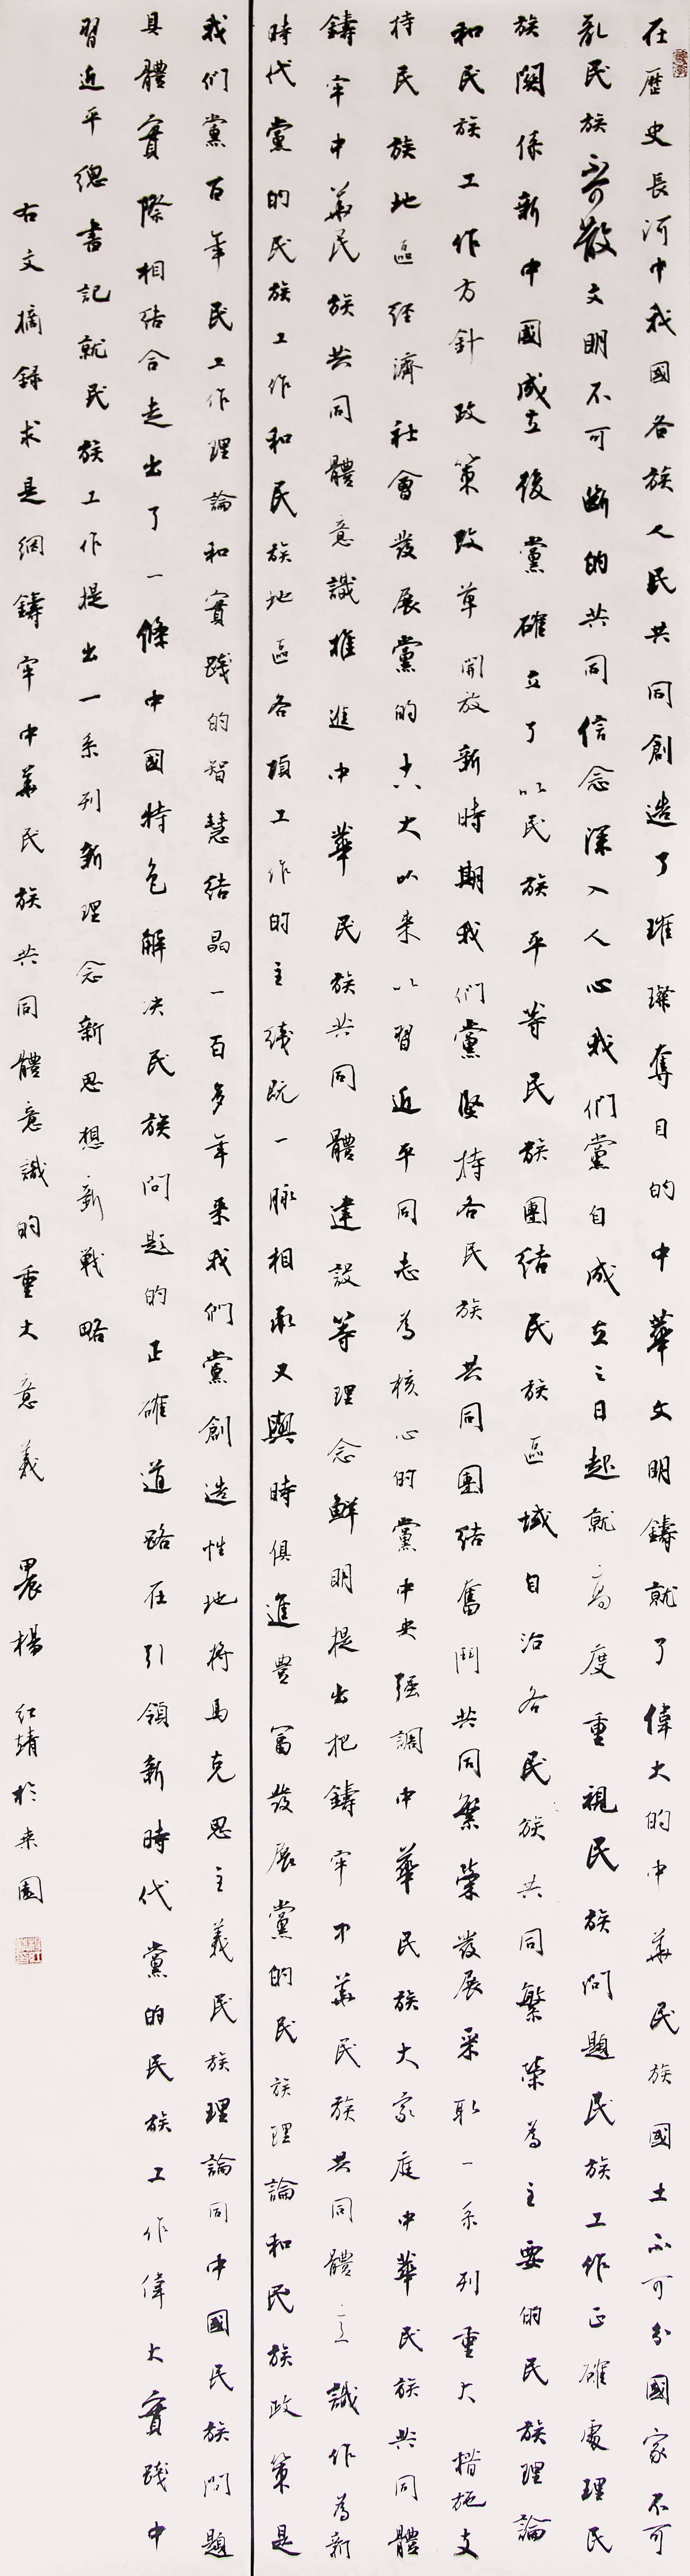 在歷史長河中我國各族人民共同創造了璀璨奪目的中華文明鑄就了偉大的中華民族國土不可分國家不可
亂民族不可散文明不可斷的共同信念深入人心我們黨自成立之日起就高度重視民族問題民族工作正確處理民
族關係新中國成立後黨確立了以民族平等民族團結民族區域自治各民族共同繁榮為主要的民族理論
和民族工作方針政策改革開放新時期我們黨堅持各民族共同團結奮鬥共同繁榮發展采取一系列重大措施支
持民族地區經濟社會發展黨的十八大以來以習近平同志為核心的黨中央強調中華民族大家庭中華民族共同體
鑄牢中華民族共同體意識推進中華民族共同體建設等理念鮮明提出把鑄牢中華民族共同體意識作為新
時代黨的民族工作和民族地區各項工作的主綫既一脉相承又與時俱進豐富發展黨的民族理論和民族政策是
我們黨百年民工作理論和實踐的智慧結晶一百多年来我們黨創造性地將馬克思主義民族理論同中國民族問題
具體實際相结合走出了一條中國特色解决民族问題的正確道路在引領新時代黨的民族工作偉大實踐中
習近平總書記就民族工作提出一系列新理念新思想新戰略
右文摘録求是網鑄牢中華民族共同體意識的重大意義 晨楊红靖於来園